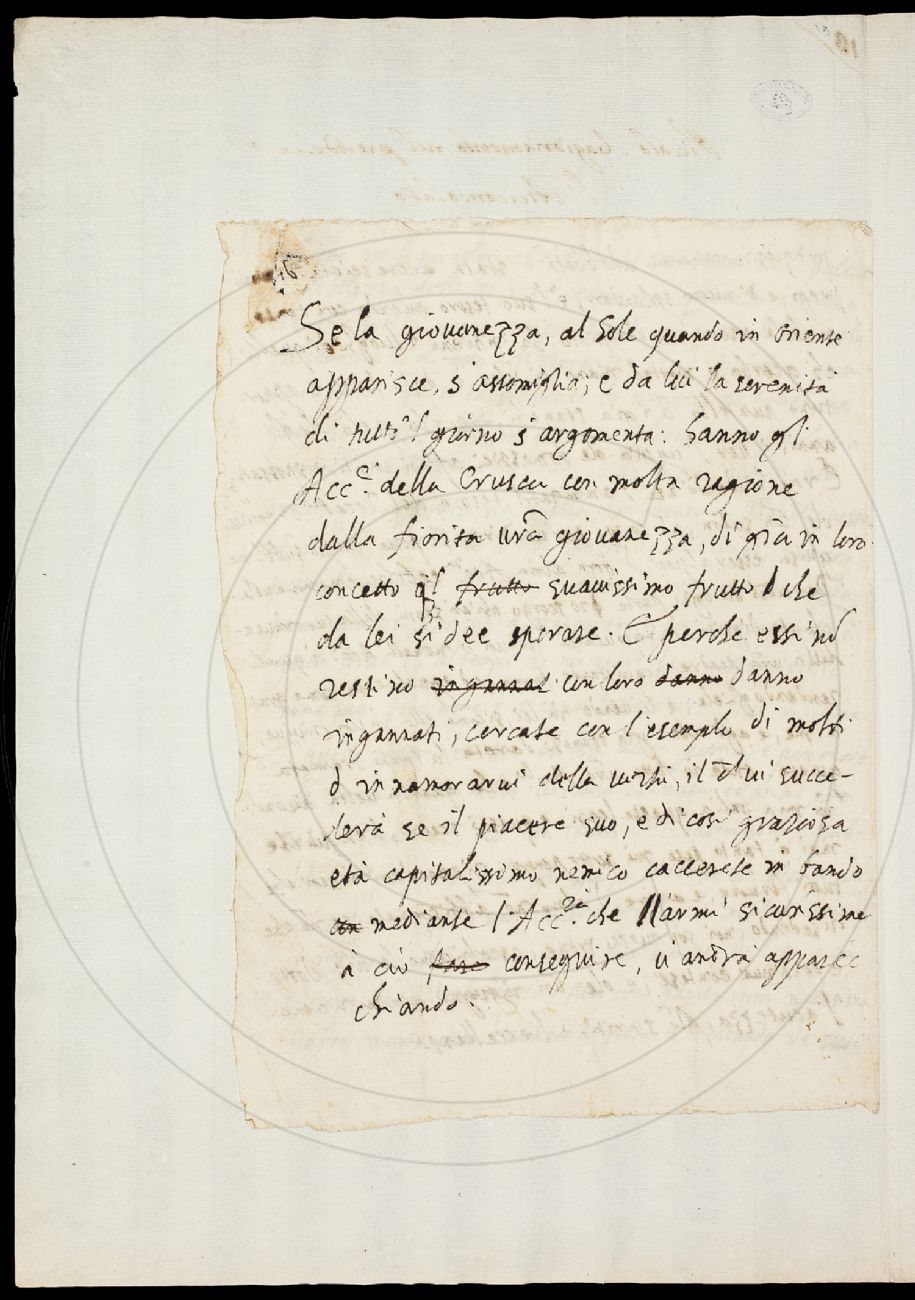 Se la giovanezza, al Sole quando in oriente
apparisce, s'assomiglia, e da lui la serenità
di tutto'l giorno s'argomenta: hanno gl'
Acc.ci della Crusca con molta ragione
dalla fiorita vrā giovanezza, di già in loro
concetto frutto suavissimo frutto che
da lei si dee sperare. E perche essi nō
restino ingannat con loro danno danno
ingannati, cercate con l'esemplo di molti
d'innamorarvi della virtù, il ch̄ vi succe-
derà se il piacere suo, e di cosi graziosa
età capitalissimo nemico caccerete in bando
con mediante l'Acc.ia che l'armi sicurissime
à ciò fare conseguire, vi andrà apparec
chiando.